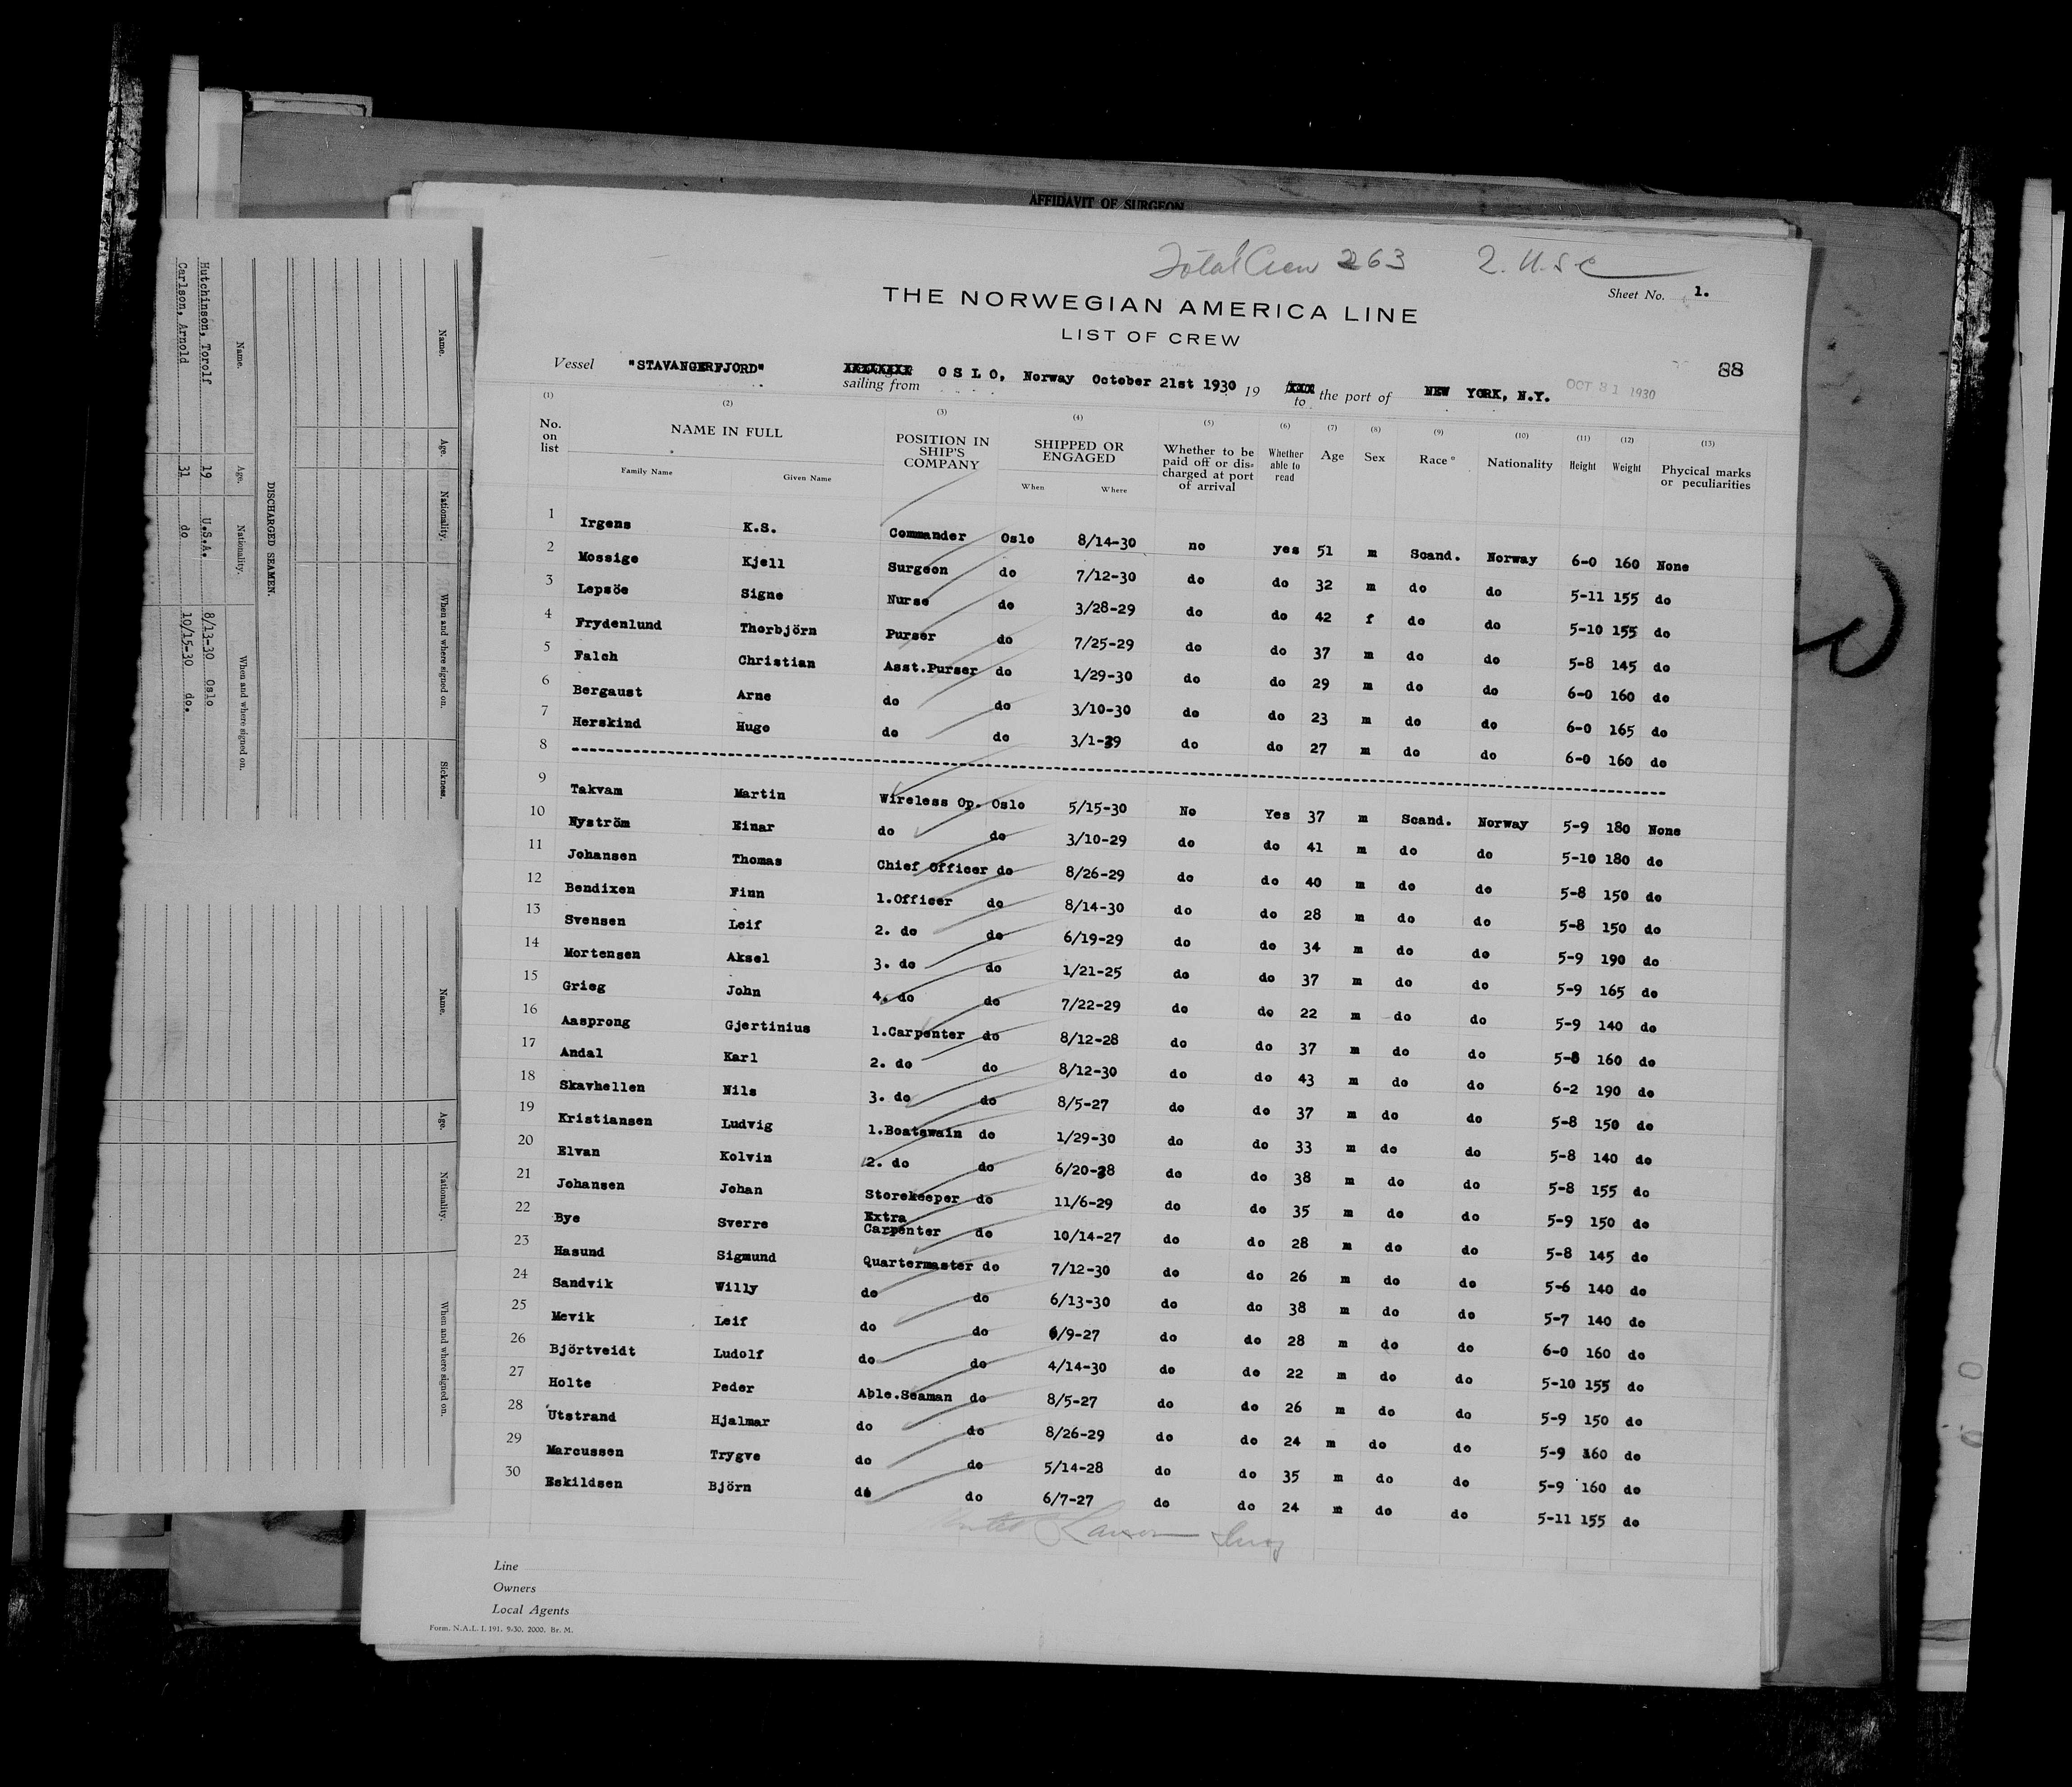 AFFIDAVIT OF SURGEON
Total Crew 263 2. U.S.C
Sheet No. 1.
THE NORWEGIAN AMERICA LINE
LIST OF CREW
88
Vessel "STAVANGERFJORD" sailing from OSLO, Norway October 21st 1930 19 to the port of NEW YORK, N.Y. OCT 31 1930
(1) (2) (3) (4) (5) (6) (7) (8) (9) (10) (11) (12) (13)
No. on list NAME IN FULL Family Name Given Name POSITION IN SHIP'S COMPANY SHIPPED OR ENGAGED When Where Whether to be paid off or dis-charged at port of arrival Whether able to read Age Sex Race Nationality Height Weight Phycical marks or peculiarities
1 Irgens K.S. Commander Oslo 8/14-30 no yes 51 m Scand. Norway 6-0 160 None
2 Mossige Kjell Surgeon do 7/12-30 do do 32 m do do 5-11 155 do
3 Lepsöe Signe Nurse do 3/28-29 do do 42 f do do 5-10 155 do
4 Frydenlund Thorbjörn Purser do 7/25-29 do do 37 m do do 5-8 145 do
5 Falch Christian Asst.Purser do 1/29-30 do do 29 m do do 6-0 160 do
6 Bergaust Arne do do 3/10-30 do do 23 m do do 6-0 165 do
7 Herskind Hugo do do 3/1-29 do do 27 m do do 6-0 160 do
8
9 Takvam Martin Wireless Op. Oslo 5/15-30 No Yes 37 m Scand. Norway 5-9 180 None
10 Nyström Einar do do 3/10-29 do do 41 m do do 5-10 180 do
11 Johansen Thomas Chief Officer do 8/26-29 do do 40 m do do 5-8 150 do
12 Bendixen Finn 1.Officer do 8/14-30 do do 28 m do do 5-8 150 do
13 Svensen Leif 2. do do 6/19-29 do do 34 m do do 5-9 190 do
14 Mortensen Aksel 3. do do 1/21-25 do do 37 m do do 5-9 165 do
15 Grieg John 4. do do 7/22-29 do do 22 m do do 5-9 140 do
16 Aasprong Gjertinius 1.Carpenter do 8/12-28 do do 37 m do do 5-8 160 do
17 Andal Karl 2. do do 8/12-30 do do 43 m do do 6-2 190 do
18 Skavhellen Nils 3. do do 8/5-27 do do 37 m do do 5-8 150 do
19 Kristiansen Ludvig 1.Boatswain do 1/29-30 do do 33 m do do 5-8 140 do
20 Elvan Kolvin 2. do do 6/20-28 do do 38 m do do 5-8 155 do
21 Johansen Johan Storekeeper do 11/6-29 do do 35 m do do 5-9 150 do
22 Bye Sverre Extra Carpenter do 10/14-27 do do 28 m do do 5-8 145 do
23 Hasund Sigmund Quartermaster do 7/12-30 do do 26 m do do 5-6 140 do
24 Sandvik Willy do do 6/13-30 do do 38 m do do 5-7 140 do
25 Mevik Leif do do 6/9-27 do do 28 m do do 6-0 160 do
26 Björtveidt Ludolf do do 4/14-30 do do 22 m do do 5-10 155 do
27 Holte Peder Able.Seaman do 8/5-27 do do 26 m do do 5-9 150 do
28 Utstrand Hjalmar do do 8/26-29 do do 24 m do do 5-9 160 do
29 Marcussen Trygve do do 5/14-28 do do 35 m do do 5-9 160 do
30 Eskildsen Björn do do 6/7-27 do do 24 m do do 5-11 155 do
Larson
Line
Owners
Local Agents
Form. N.A.L. I. 191. 9-30. 2000. Br. M.
Name. Age. Nationality. When and where signed on. Sickness.
DISCHARGED SEAMEN.
Name. Age. Nationality. When and where signed on.
Hutchinson, Torolf 19 U.S.A. 8/13-30 Oslo
Carlson, Arnold 31 do 10/15-30 do.
Name. Age. Nationality. When and where signed on.